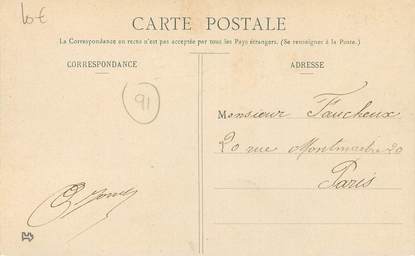 10€
CARTE POSTALE
La Correspondance au recto n'est pas acceptée par tous les Pays étrangers. (Se renseigner à la Poste.)
CORRESPONDANCE
ADRESSE
91
Monsieur Faucheux
20 rue Montmartre 20
Paris